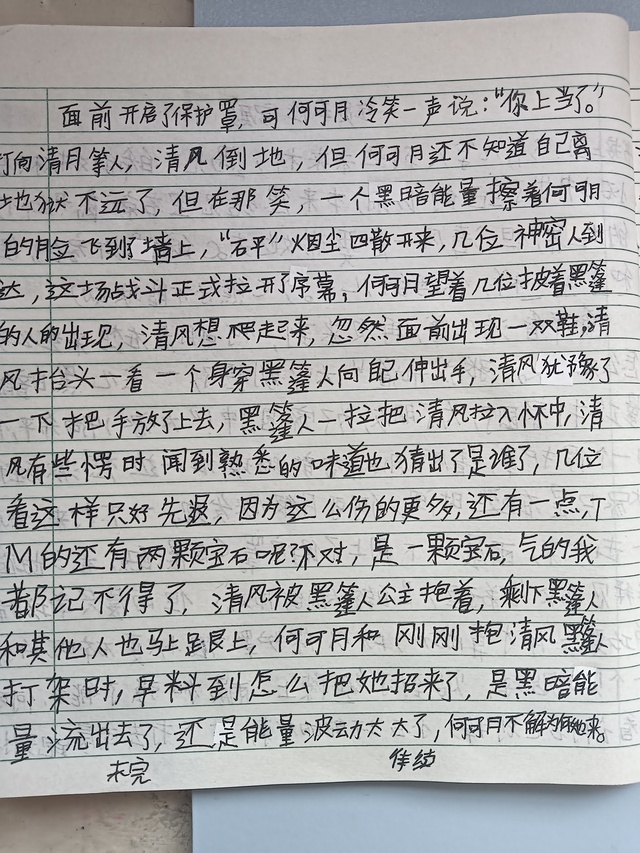 面前开启了保护罩,可何可月冷笑一声说:“你上当了。”
打向清月篷人,清风倒地,但何可月还不知道自己离
地狱不远了,但在那笑,一个黑暗能量擦着何可月
的脸飞到了墙上,“石平”烟尘四散开来,几位神密人到
达,这场战斗正式拉开了序幕,何可月望着几位披着黑篷
的人的出现,清风想爬起来,忽然面前出现一双鞋,清
风抬头一看一个身穿黑篷人向自己伸出手,清风犹豫了
一下把手放了上去,黑篷人一拉把清风拉入怀中,清
风有些愣时闻到熟悉的味道也猜出了是谁了,几位
看这样只好先退,因为这么伤的更多,还有一点,T
M的还有两颗宝石呢?不对,是一颗宝石,气的我
都记不得了,清风被黑篷人公主抱着,剩下黑篷人
和其他人也马上跟上,何可月和刚刚抱清风黑篷人
打架时,早料到怎么把她招来了,是黑暗能
量流出去了,还是能量波动太大了,何可月不解为何她来。
未完 待续